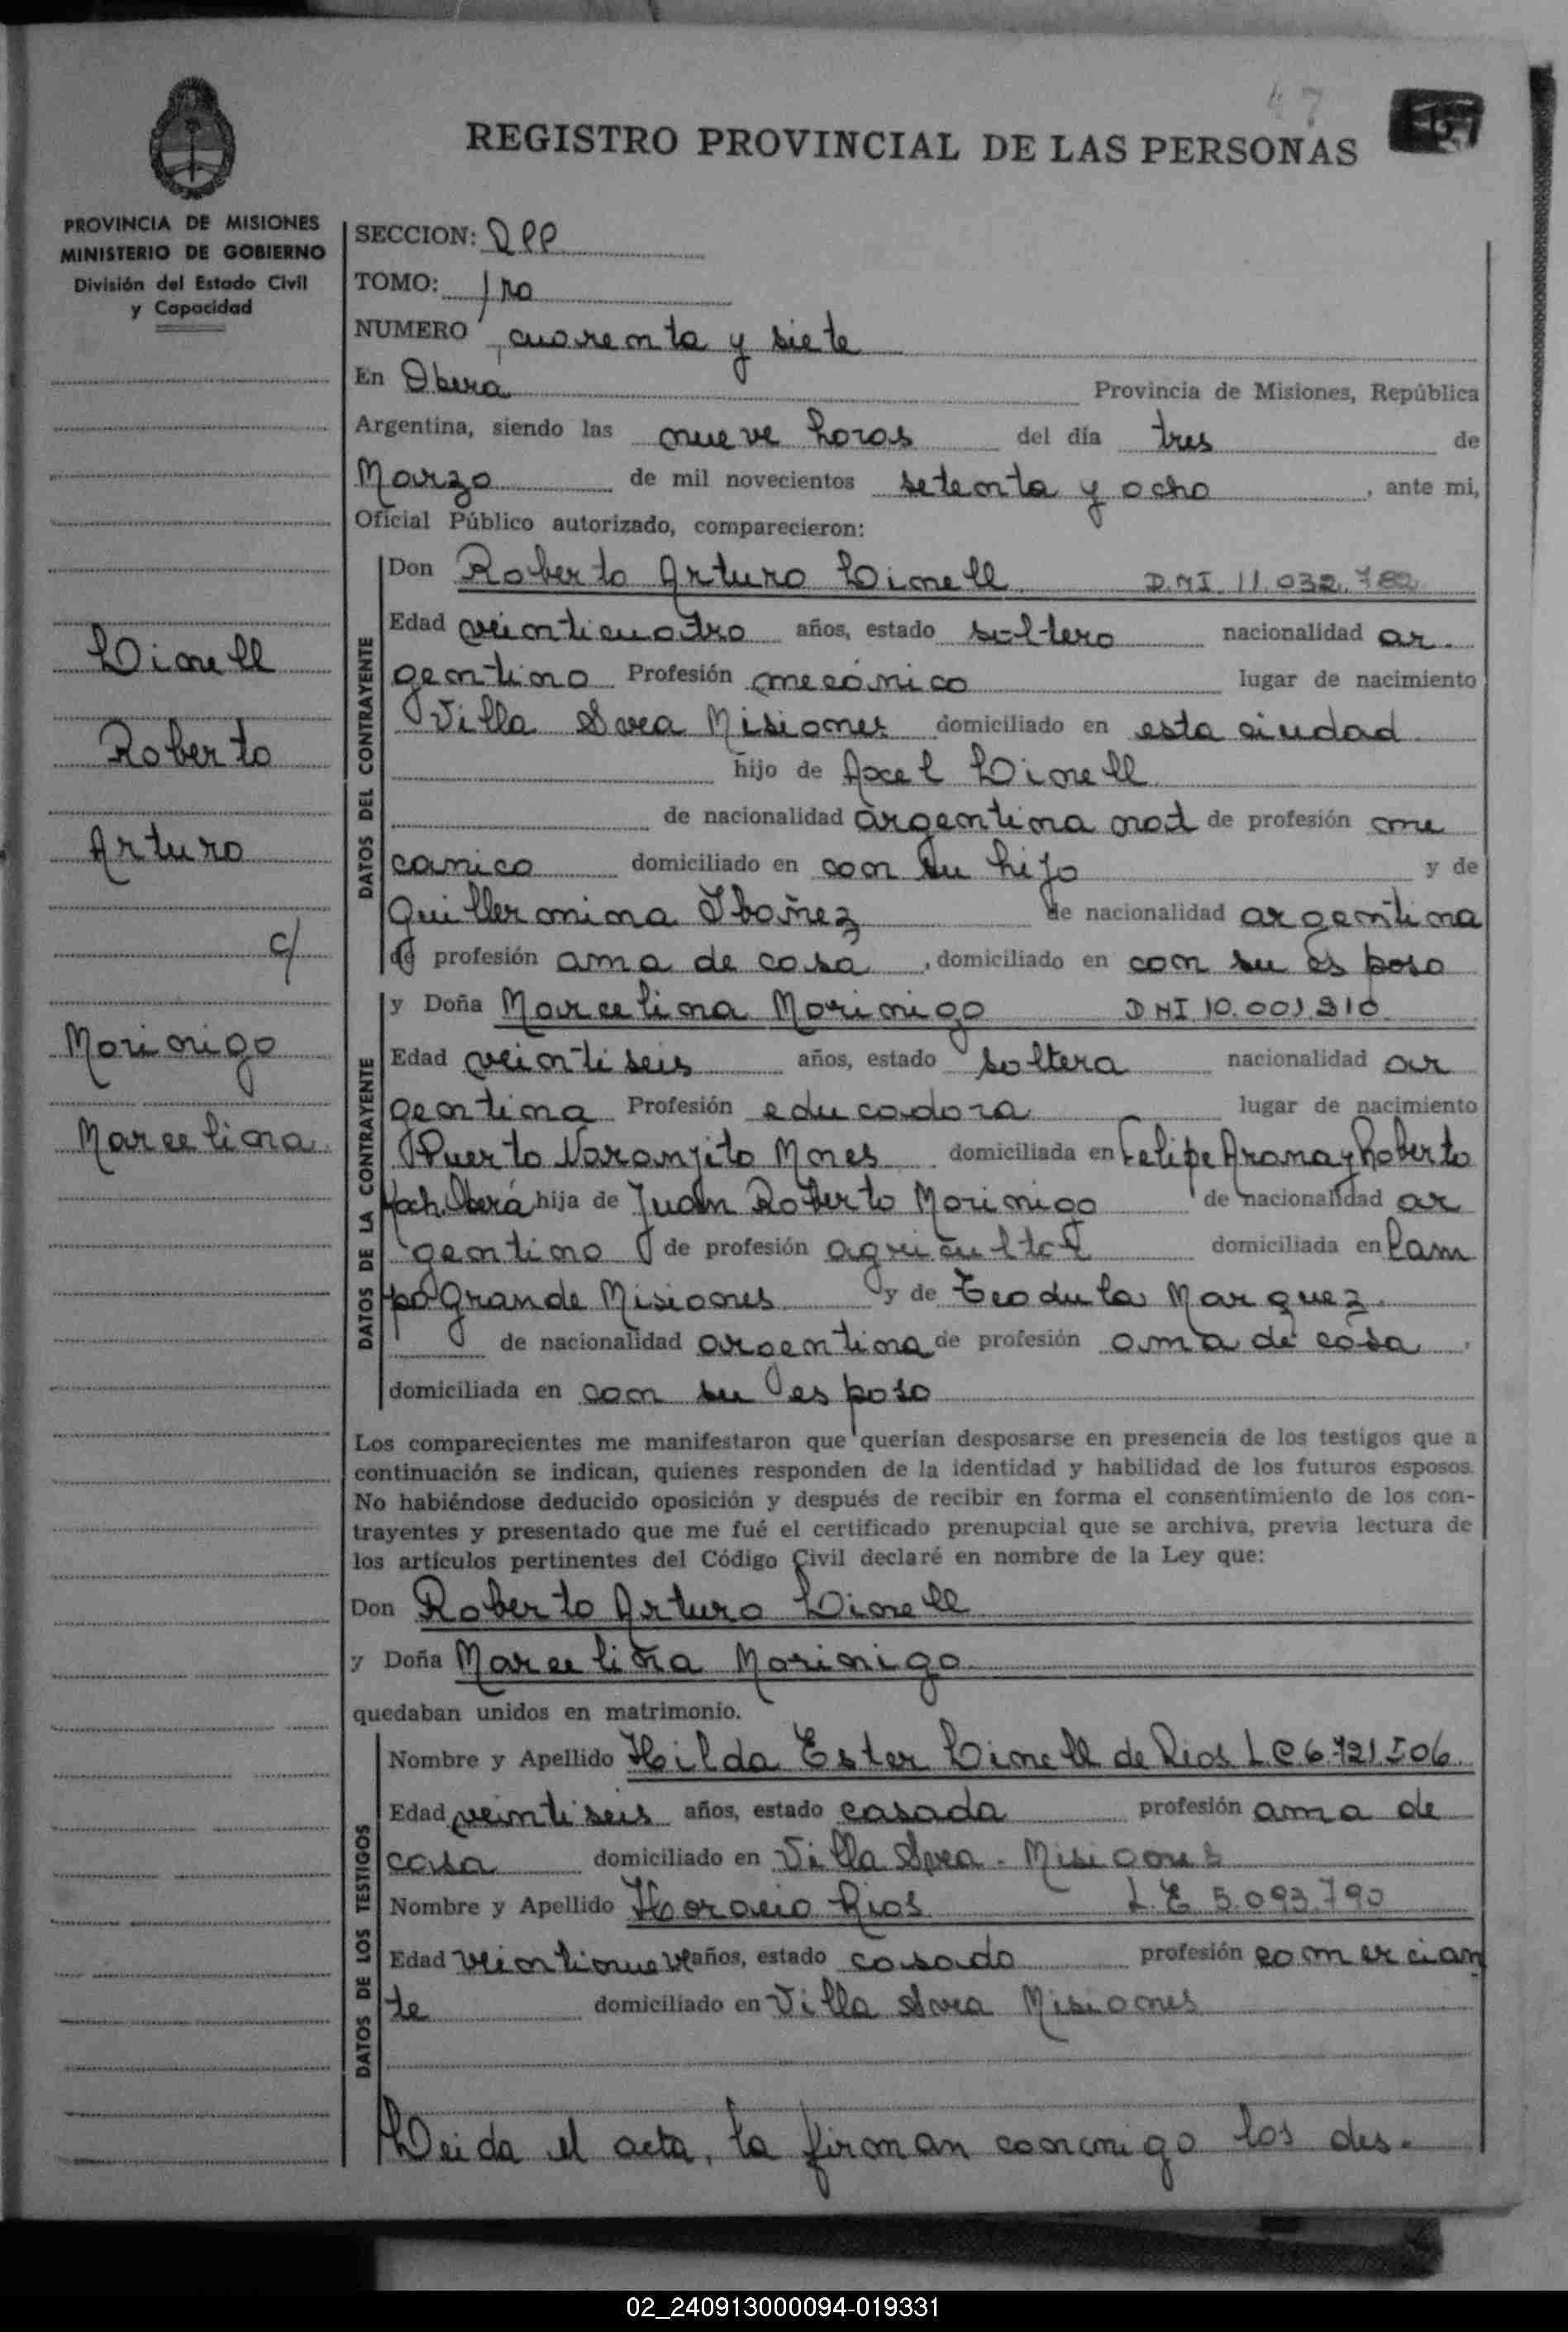 47
REGISTRO PROVINCIAL DE LAS PERSONAS
PROVINCIA DE MISIONES
MINISTERIO DE GOBIERNO
División del Estado Civil
y Capacidad
Linell
Roberto
Arturo
c/
Morinigo
Marcelina
SECCION: DPP
TOMO: 1ro
NUMERO cuarenta y siete
En Obera Provincia de Misiones, República
Argentina, siendo las nueve horas del día tres de
Marzo de mil novecientos setenta y ocho, ante mi,
Oficial Público autorizado, comparecieron:
DATOS DEL CONTRAYENTE
Don Roberto Arturo Linell DNI 11.032.782
Edad veinticuatro años, estado soltero nacionalidad ar-
gentino Profesión mecánico lugar de nacimiento
Villa Svea Misiones domiciliado en esta ciudad
hijo de Axel Linell
de nacionalidad argentina nat de profesión me
canico domiciliado en con su hijo y de
Guillermina Ibañez de nacionalidad argentina
de profesión ama de casa, domiciliado en con su esposo
DATOS DE LA CONTRAYENTE
y Doña Marcelina Morinigo DNI 10.001.910
Edad veintiseis años, estado soltera nacionalidad ar
gentina Profesión educadora lugar de nacimiento
Puerto Naranjito Mnes domiciliada en Felipe Arana y Roberto
Hoch. Oberá hija de Juan Roberto Morinigo de nacionalidad ar
gentino de profesión agricultor domiciliada en Cam
po Grande Misiones y de Teodula Marquez
de nacionalidad argentina de profesión ama de casa,
domiciliada en con su esposo
Los comparecientes me manifestaron que querían desposarse en presencia de los testigos que a
continuación se indican, quienes responden de la identidad y habilidad de los futuros esposos.
No habiéndose deducido oposición y después de recibir en forma el consentimiento de los con-
trayentes y presentado que me fué el certificado prenupcial que se archiva, previa lectura de
los artículos pertinentes del Código Civil declaré en nombre de la Ley que:
Don Roberto Arturo Linell
y Doña Marcelina Morinigo
quedaban unidos en matrimonio.
DATOS DE LOS TESTIGOS
Nombre y Apellido Hilda Ester Linell de Rios LC 6.721.506
Edad veintiseis años, estado casada profesión ama de
casa domiciliado en Villa Svea - Misiones
Nombre y Apellido Horacio Rios L.E 5.093.790
Edad veintinueve años, estado casado profesión comercian
te domiciliado en Villa Svea Misiones
Leida el acta, la firman conmigo los des-
02_240913000094-019331